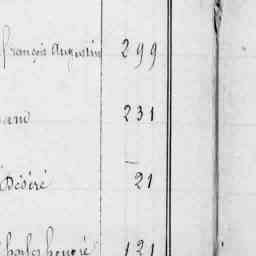 françois Augustin 299
231
Désiré 21
Charles honoré 121